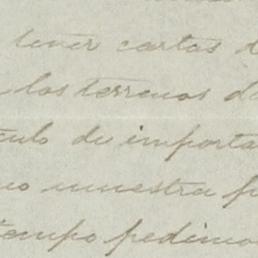 tener cartas
los terrenos d
culo de importa
no nuestra
tiempo pedimo